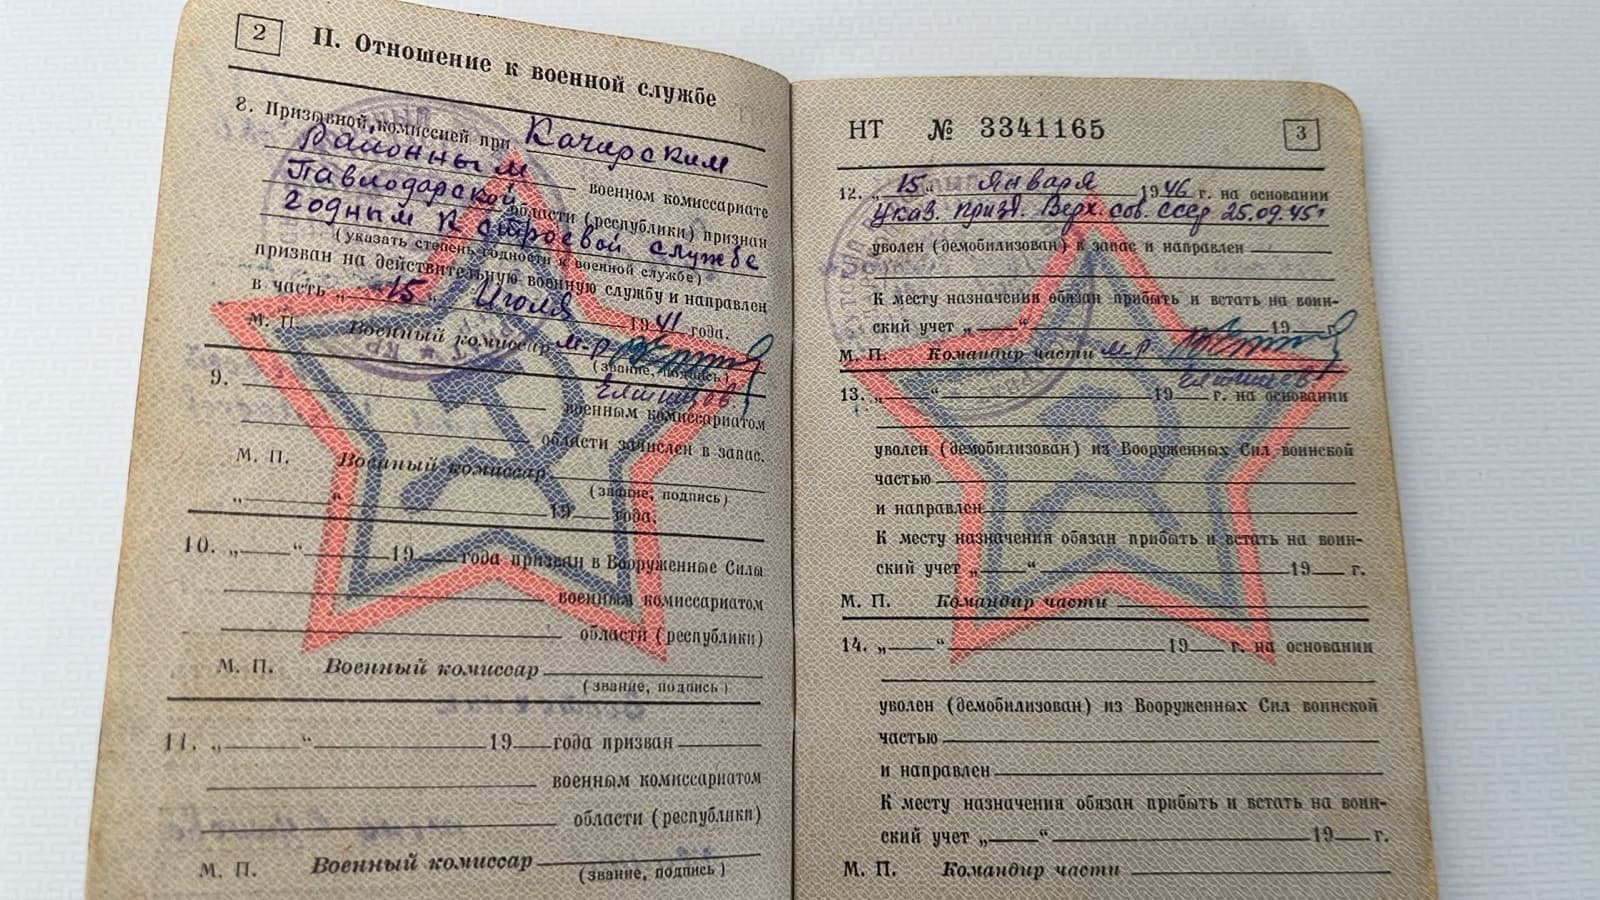 2
II. Отношение к военной службе
8. Призывной комиссией при Качирским
Районным военном комиссариате
Павлодарской области (республики) признан
годным к строевой службе
(указать степень годности к военной службе)
призван на действительную военную службу и направлен
в часть „ 15 “ Июля 1941 года.
М. П. Военный комиссар м-р
(звание, подпись)
9.
военным комиссариатом
области зачислен в запас.
М. П. Военный комиссар
(звание, подпись)
„ “ 19 года.
10. „ “ 19 года призван в Вооруженные Силы
военным комиссариатом
области (республики)
М. П. Военный комиссар
(звание, подпись)
11. „ “ 19 года призван
военным комиссариатом
области (республики)
М. П. Военный комиссар
(звание, подпись)
НТ № 3341165
3
12. „ 15 “ Января 1946 г. на основании
Указ. през. Верх. сов. СССР 25.09.45г
уволен (демобилизован) в запас и направлен
К месту назначения обязан прибыть и встать на воин-
ский учет „ “ 19 г.
М. П. Командир части м-р
13. „ “ 19 г. на основании
уволен (демобилизован) из Вооруженных Сил воинской
частью
и направлен
К месту назначения обязан прибыть и встать на воин-
ский учет „ “ 19 г.
М. П. Командир части
14. „ “ 19 г. на основании
уволен (демобилизован) из Вооруженных Сил воинской
частью
и направлен
К месту назначения обязан прибыть и встать на воин-
ский учет „ “ 19 г.
М. П. Командир части